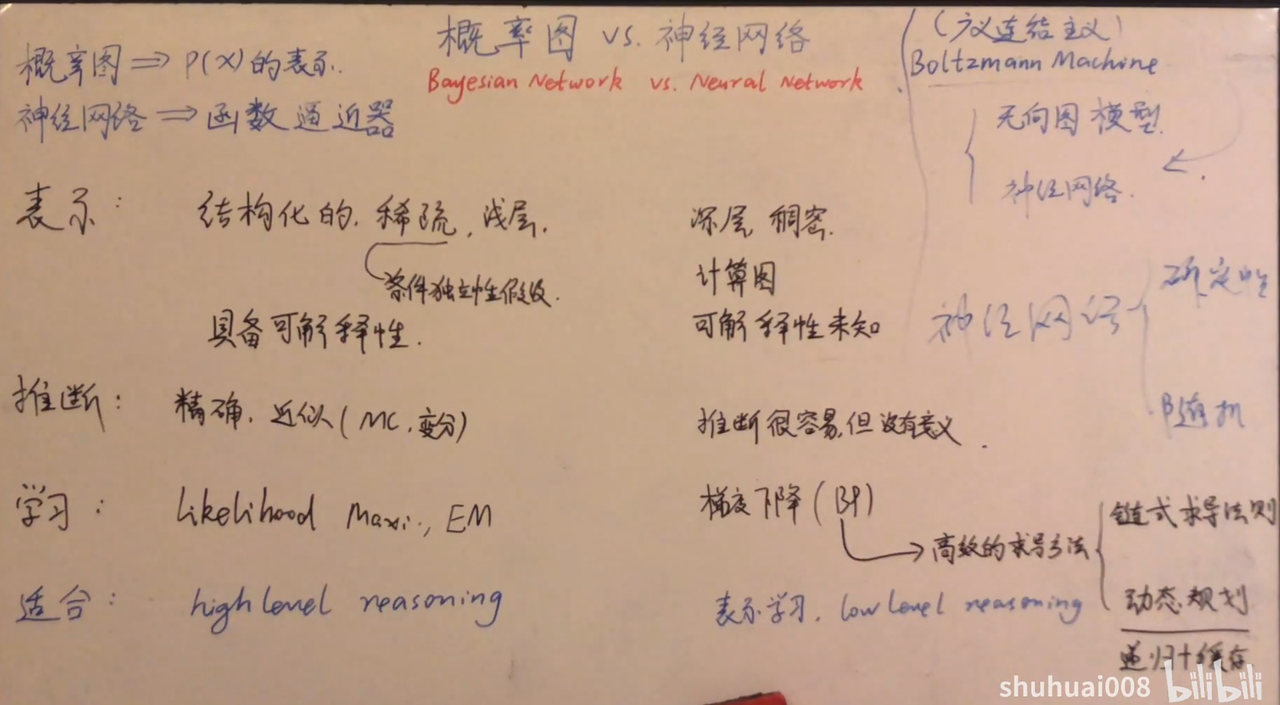 概率图 vs. 神经网络
Bayesian Network vs. Neural Network
概率图 ⇒ P(X)的表示.
神经网络 ⇒ 函数逼近器
(广义连结主义)
Boltzmann Machine
无向图模型.
神经网络.
表示: 结构化的. 稀疏, 浅层. 深层, 稠密.
条件独立性假设. 计算图
具备可解释性. 可解释性未知
神经网络 确定性
随机
推断: 精确, 近似(MC, 变分) 推断很容易, 但没有意义.
学习: Likelihood Maxi., EM 梯度下降(BP)
高效的求导方法
链式求导法则
动态规划
递归+缓存
适合: high level reasoning 表示学习. low level reasoning
shuhuai008 bilibili